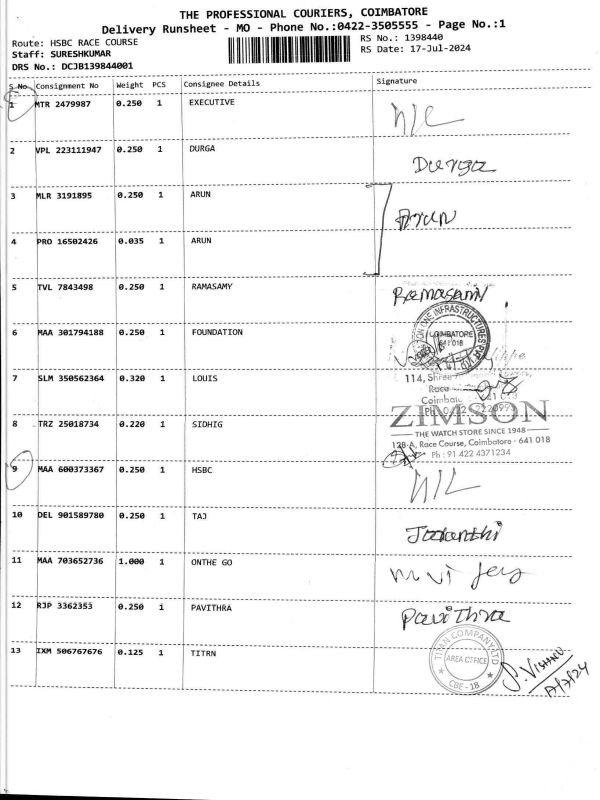 THE PROFESSIONAL COURIERS, COIMBATORE
Delivery Runsheet - MO - Phone No.:0422-3505555 - Page No.:1
Route: HSBC RACE COURSE
RS No.: 1398440
Staff: SURESHKUMAR
RS Date: 17-Jul-2024
DRS No.: DCJB139844001
S No. Consignment No Weight PCS Consignee Details Signature
1 MTR 2479987 0.250 1 EXECUTIVE
N/C
2 VPL 223111947 0.250 1 DURGA
Durga
3 MLR 3191895 0.250 1 ARUN
Arun
4 PRO 16502426 0.035 1 ARUN
5 TVL 7843498 0.250 1 RAMASAMY
Ramasamy
6 MAA 301794188 0.250 1 FOUNDATION
ON ONE INFRASTRUCTURES PVT LTD
COIMBATORE
641 018
7 SLM 350562364 0.320 1 LOUIS
114, Shree
Race
Coimbato 641 018
Ph: 0422
8 TRZ 25018734 0.220 1 SIDHIG
ZIMSON
THE WATCH STORE SINCE 1948
128-A, Race Course, Coimbatore - 641 018
Ph : 91 422 4371234
9 MAA 600373367 0.250 1 HSBC
N/C
10 DEL 901589780 0.250 1 TAJ
11 MAA 703652736 1.000 1 ONTHE GO
12 RJP 3362353 0.250 1 PAVITHRA
Pavithra
13 IXM 506767676 0.125 1 TITRN
TITAN COMPANY LTD
AREA OFFICE
CBE - 18
S. VISHNU
17/7/24